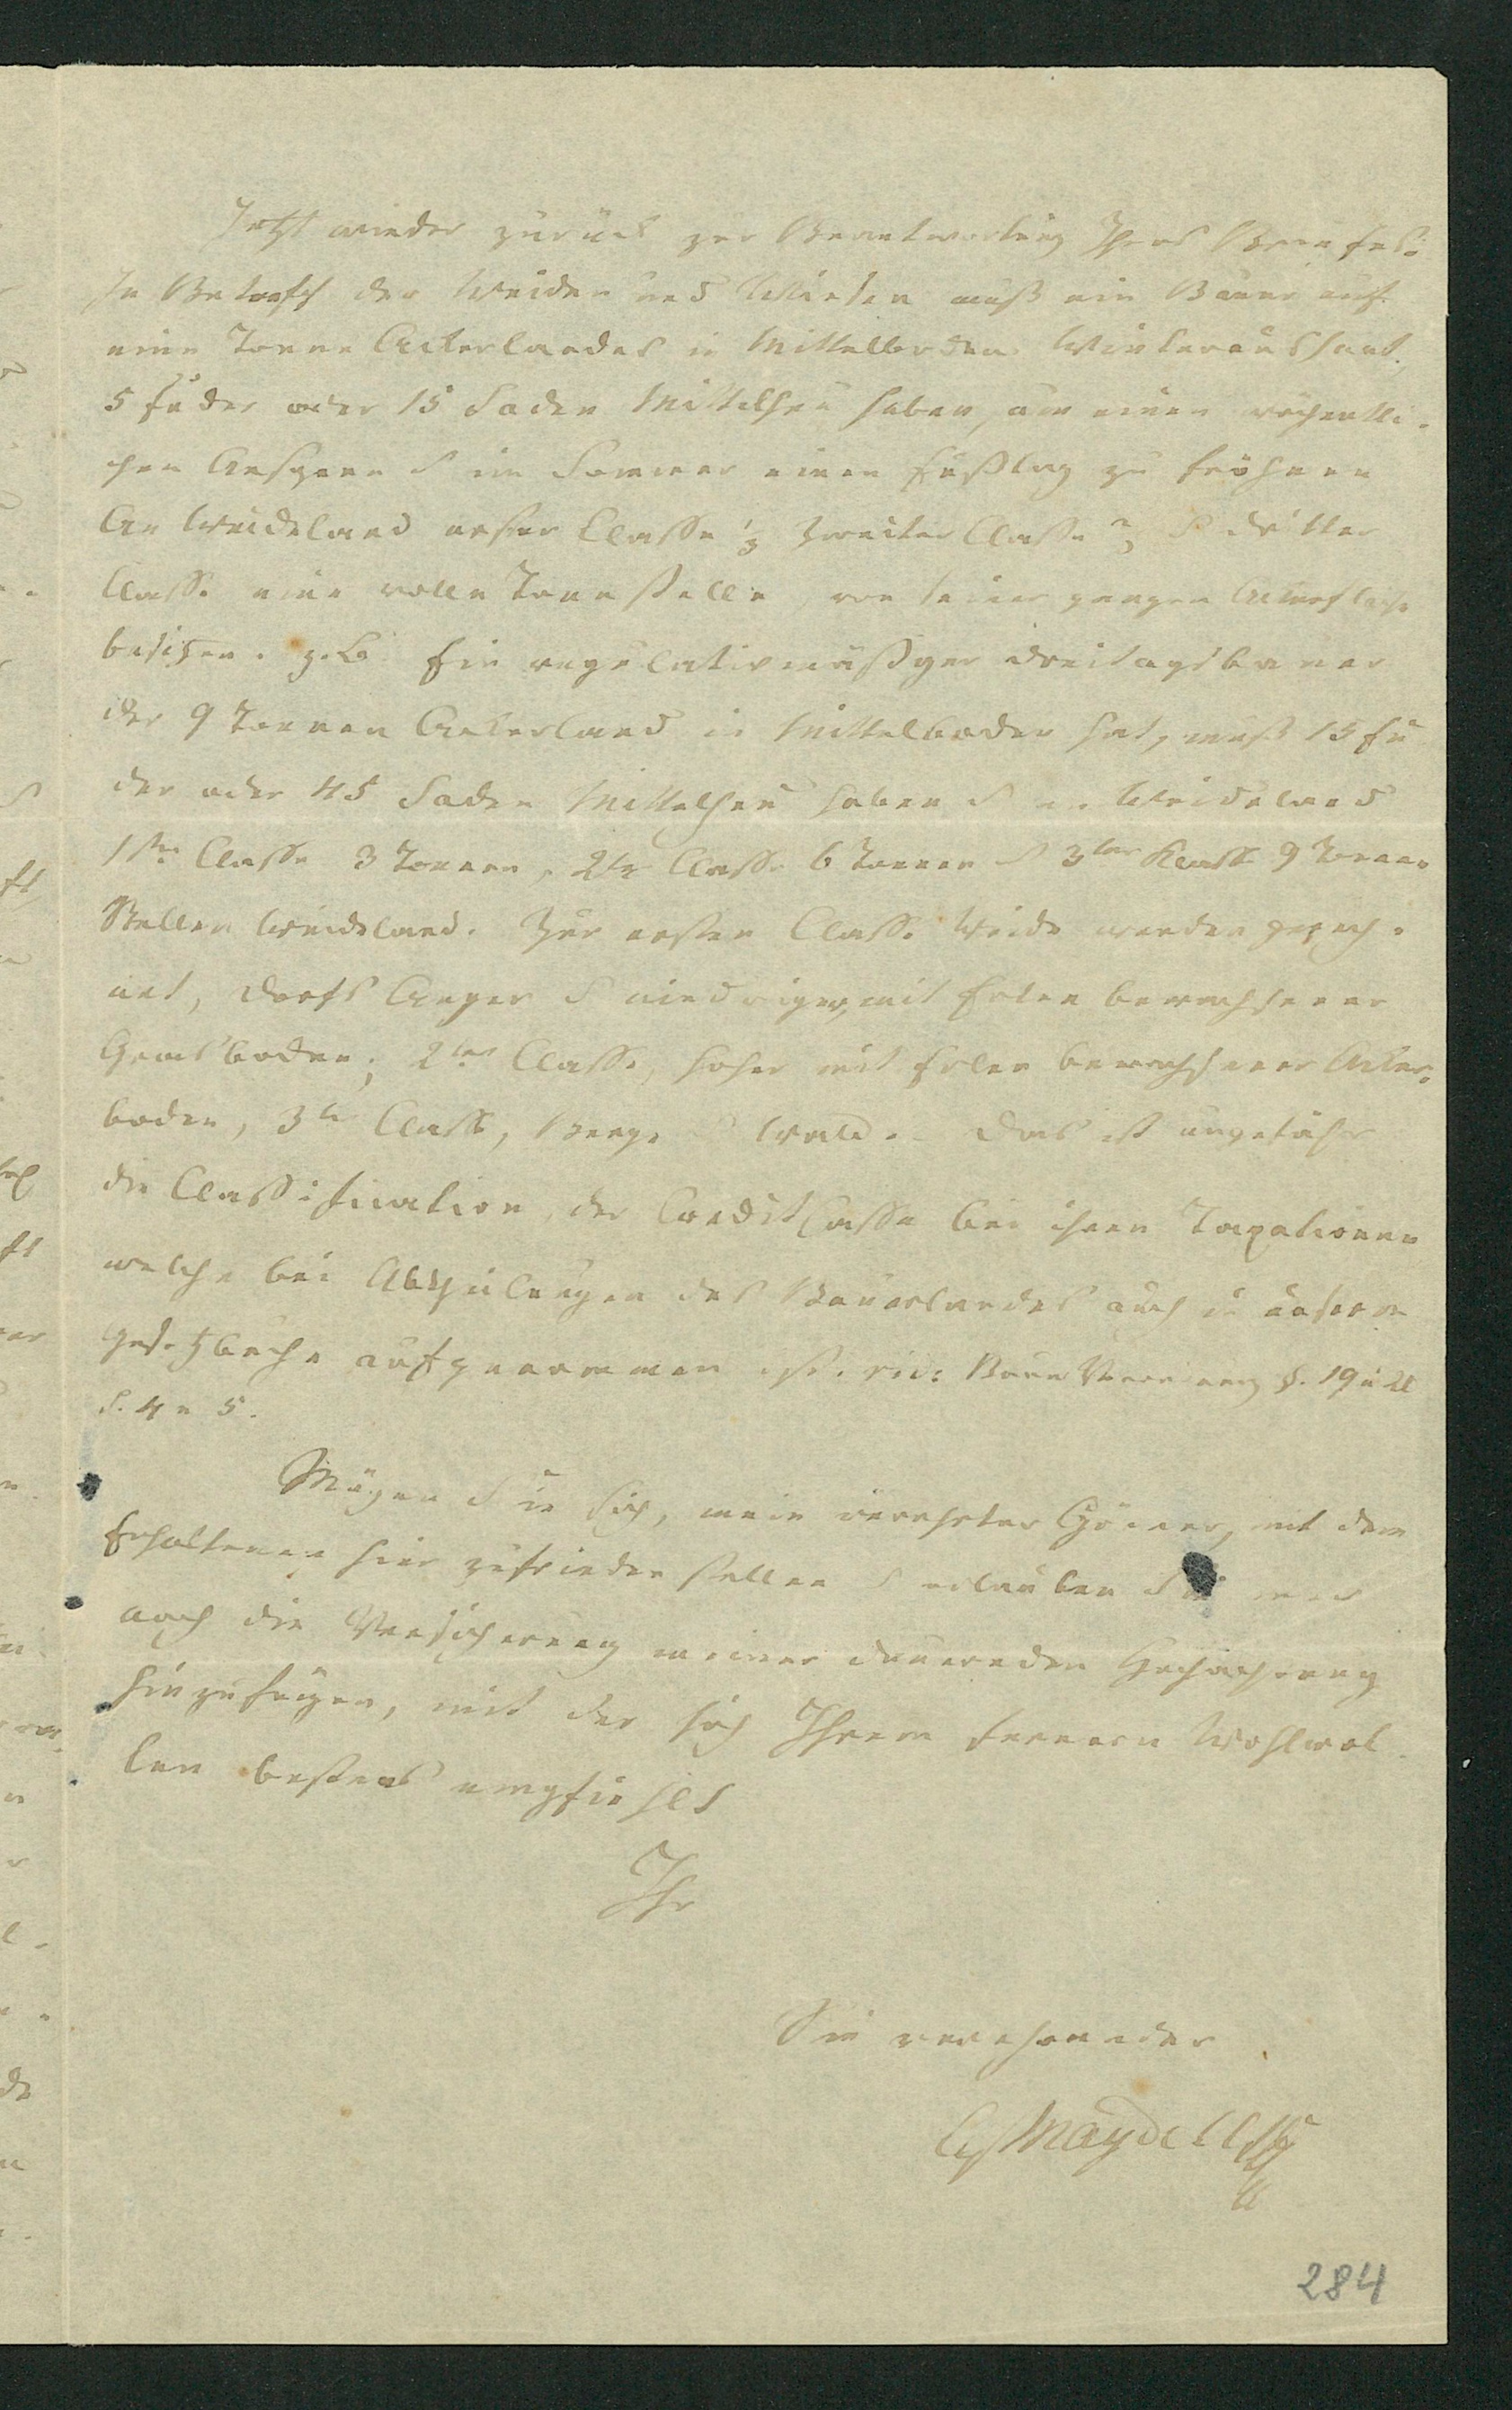 Jetzt wieder zurück zur Beantwortung Ihres Briefes:
In Betreff der Weiden und Wiesen muß ein Bauer auf
eine Tonne Ackerlandes in Mittelboden Winteraussaat,
5 Fuder oder 15 Saden Mittelheu haben, um einen wöchentli-
chen Anspann & im Sommer einen Fußtag zu fröhnen
An Weideland erster Classe ⅓ zweiter Classe ⅔ & dritter
Classe eine volle Tonnstelle, von seiner ganzen Ackerfläche
besitzen. z.B. Ein regulativmäßger Dreitagsbauer
der 9 Tonnen Ackerland in Mittelboden hat, muß 15 Fu
der oder 45 Saden Mittelheu haben & an Weideland
1ster Classe 3 Tonnen, 2ter Classe 6 Tonnen & 3ter Klasse 9 Tonnen
Stellen Weideland. Zur ersten Classe Weide werden gerech-
net, Dorfs Anger & niedriger, mit Erlen bewachsener
Grasboden; 2ter Classe, hoher mit Erlen bewachsener Acker-
boden, 3te Classe, Berge & Wald. Das ist ungefähr
die Classification, der Credit Casse bei ihren Taxationen
welche bei Abtheilungen des Bauerlandes auch in unserm
Gesetzbuche aufgenommen ist. vid: Bauer Verordnung §. 19 u 21
S. 4 u 5.
Mögen Sie sich, mein verehrter Gönner, mit dem
Erhaltenen hier zufrieden stellen & erlauben Sie mir
noch die Versicherung meiner dauernden Hochachtung
hinzufügen, mit der sich Ihrem fernern Wohlwol-
len bestens empfiehlt
Ihr
Sie verehrender
Maydell
284